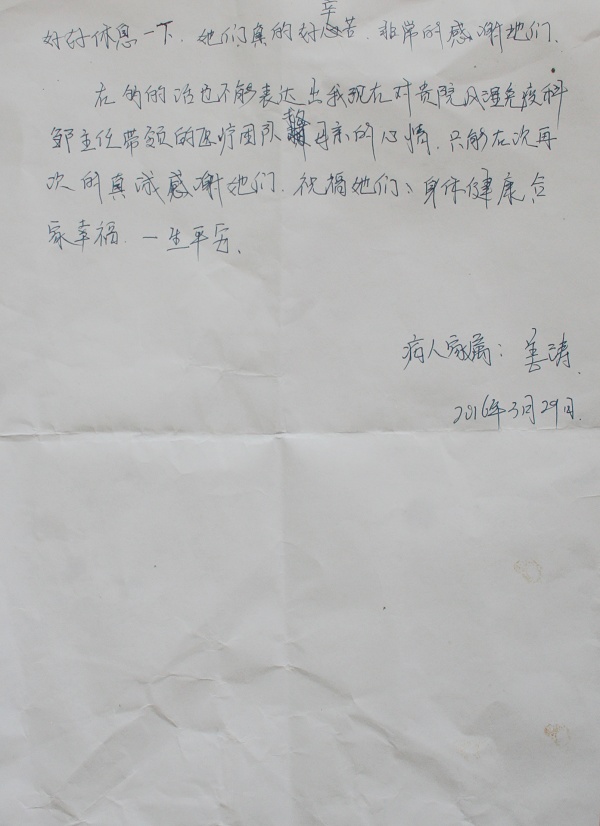 好好休息一下、她们真的好辛苦、非常的感谢她们、
在多的话也不能表达出我现在对贵院风湿免疫科
邹主任带领的医疗团队 的心情、只能在次再
次的真诚感谢她们、祝福她们、身体健康合
家幸福、一生平安、
病人家属：姜涛、
2016年3月29日